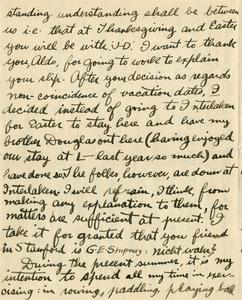 standing understanding shall be between
us i.e. that at Thanksgiving and Easter
you will be with J-D. I want to thank
you, Aldo, for going to work to explain
your slip. After your decision as regards
non-coincidence of vacation dates, I
decided instead of going to Interlaken
for Easter to stay here and have my
brother Douglas out here (having enjoyed
our stay at L- last year so much) and
have done so. The folks, however, are down at
Interlaken. I will refrain, I think, from
making any explanation to them, for
matters are sufficient at present. I
take it for granted that your friend
in Stanford is G.E. Shipway: nicht wahr?
During the present summer, it is my
intention to spend all my time in exer-
cising: in rowing, paddling, playing ball